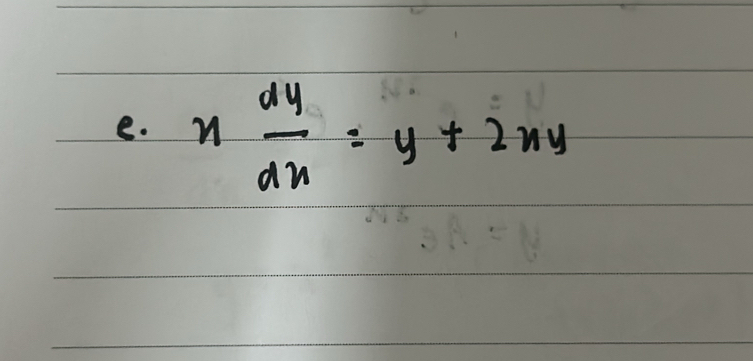 e. x dy/dx = y + 2xy